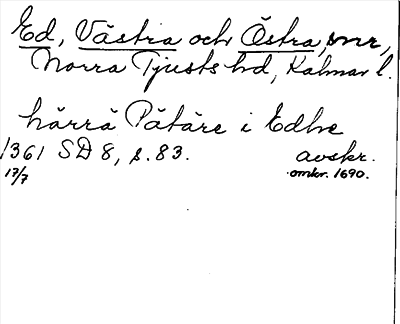 Ed, Västra och Östra, snr,
Norra Tjusts hd, Kalmar l.
härrä Pätäre i Edhe
1361 SD 8, s. 83. avskr.
17/7 omkr. 1690.